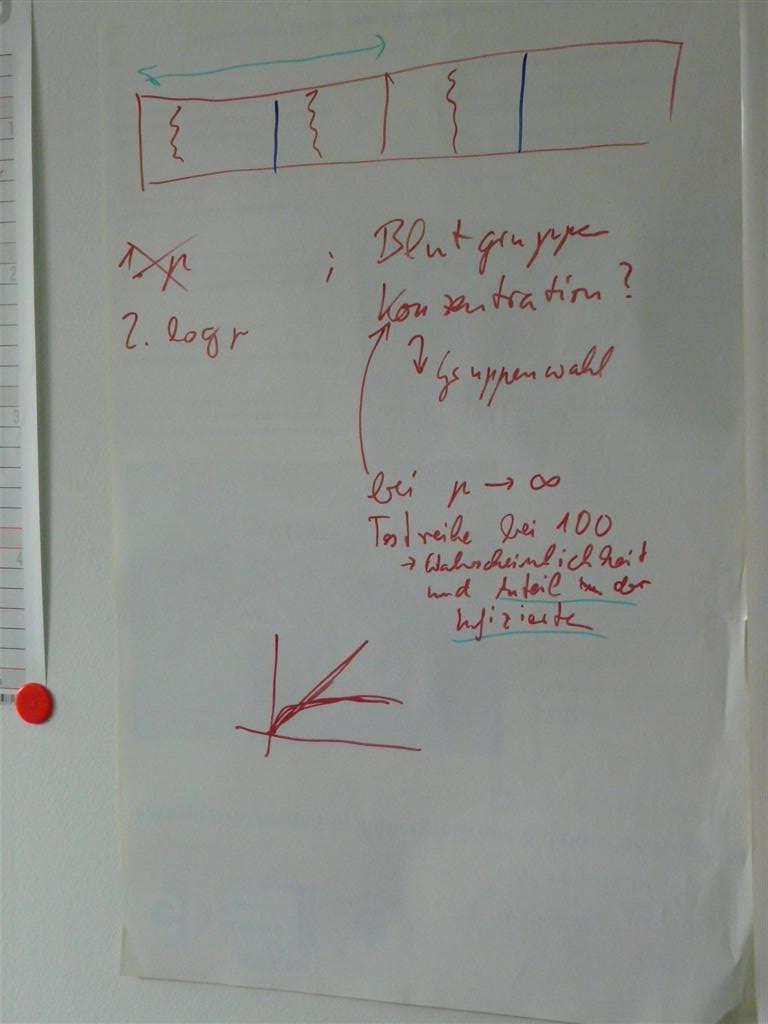 Blutgruppen
Konzentration?
2. log p
Gruppenwahl
bei p → ∞
Testreihe bei 100
→ Wahrscheinlichkeit
und Anteil der
Infizierten